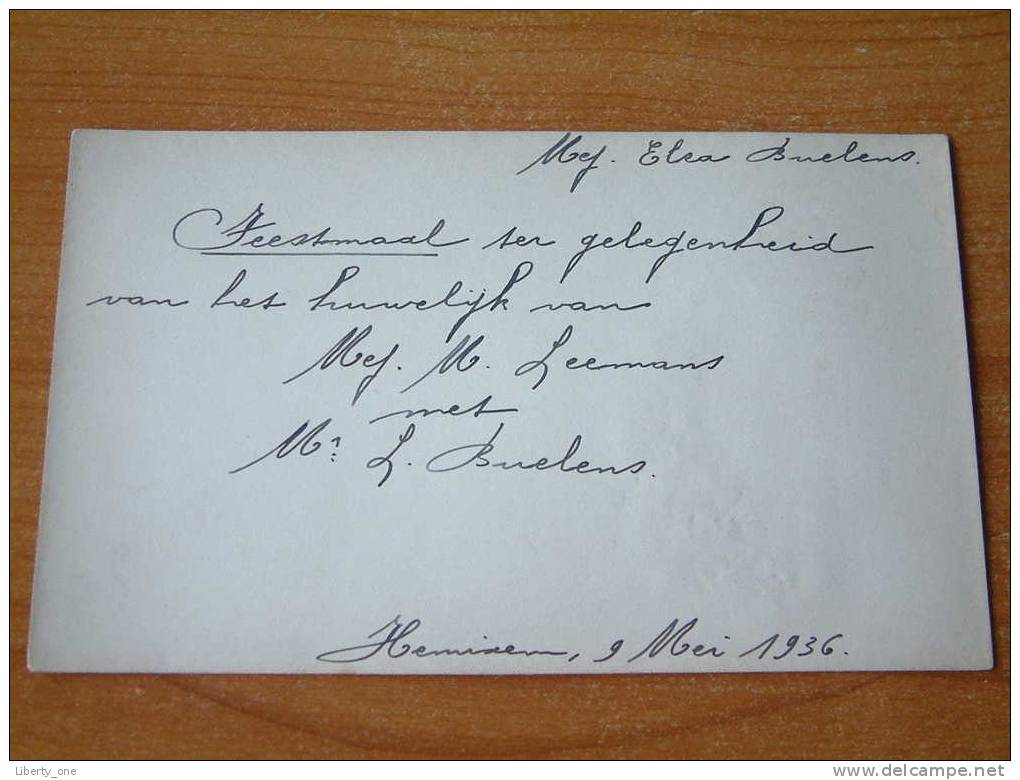 Mej. Elza Buelens.
Feestmaal ter gelegenheid
van het huwelijk van
Mej. M. Leemans
met
Mr. L. Buelens.
Hemixem, 9 Mei 1936.
Liberty_one
www.delcampe.net